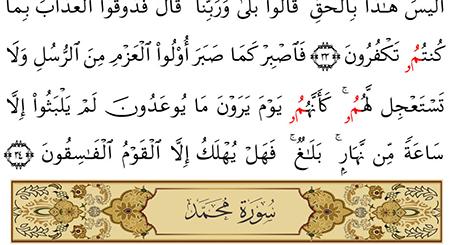 أَلَيْسَ هَٰذَا بِٱلْحَقِّ قَالُواْ بَلَىٰ وَرَبِّنَا قَالَ فَذُوقُواْ ٱلْعَذَابَ بِمَا
كُنتُمُۥ تَكْفُرُونَ ٣٣ فَٱصْبِرْ كَمَا صَبَرَ أُوْلُواْ ٱلْعَزْمِ مِنَ ٱلرُّسُلِ وَلَا
تَسْتَعْجِل لَّهُمُۥۚ كَأَنَّهُمُۥ يَوْمَ يَرَوْنَ مَا يُوعَدُونَ لَمْ يَلْبَثُواْ إِلَّا
سَاعَةً مِّن نَّهَارٍۭۚ بَلَٰغٌۚ فَهَلْ يُهْلَكُ إِلَّا ٱلْقَوْمُ ٱلْفَٰسِقُونَ ٣٤
سُورَةُ مُحَمَّد